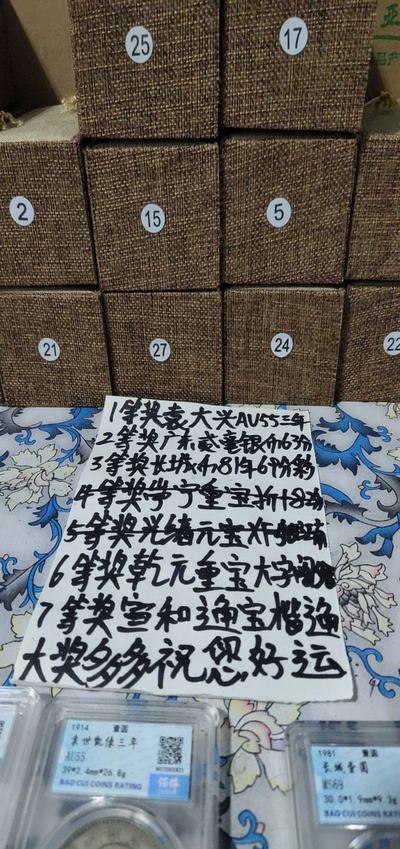 25
17
2
15
5
21
27
24
22
1等奖袁大头AU55三年
2等奖广东贰毫银币63分
3等奖长城币81年69分
4等奖崇宁重宝折十82
5等奖光绪元宝
6等奖乾元重宝大字
7等奖宣和通宝楷通
大奖多多祝您好运
1914 壹圆
袁世凯像三年
AU55
39*2.4mm*26.8g
BAO CUI COINS RATING
1981 壹圆
长城壹圆
MS69
30.0*1.9mm*9.3g
BAO CUI COINS RATING